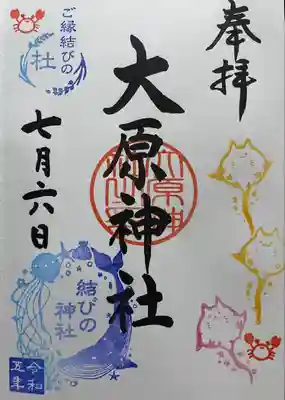 奉拝
大原神社
ご縁結びの
杜
七月六日
結びの
神社
令和
五年